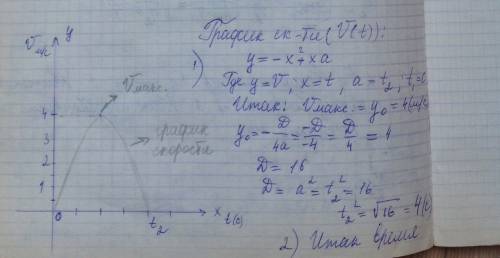 V м/с
y
Vмакс.
4
график
скорости
3
2
1
0
t₂
x t(c)
График ск-ти (V(t)):
1) y = -x² + xa
Где y = V, x = t, a = t₂, t₁ = 0
Итак: Vмакс. = y₀ = 4(м/с)
y₀ = -D/4a = -D/-4 = D/4 = 4
D = 16
D = a² = t₂² = 16
t₂² = √16 = 4(c)
2) Итак время